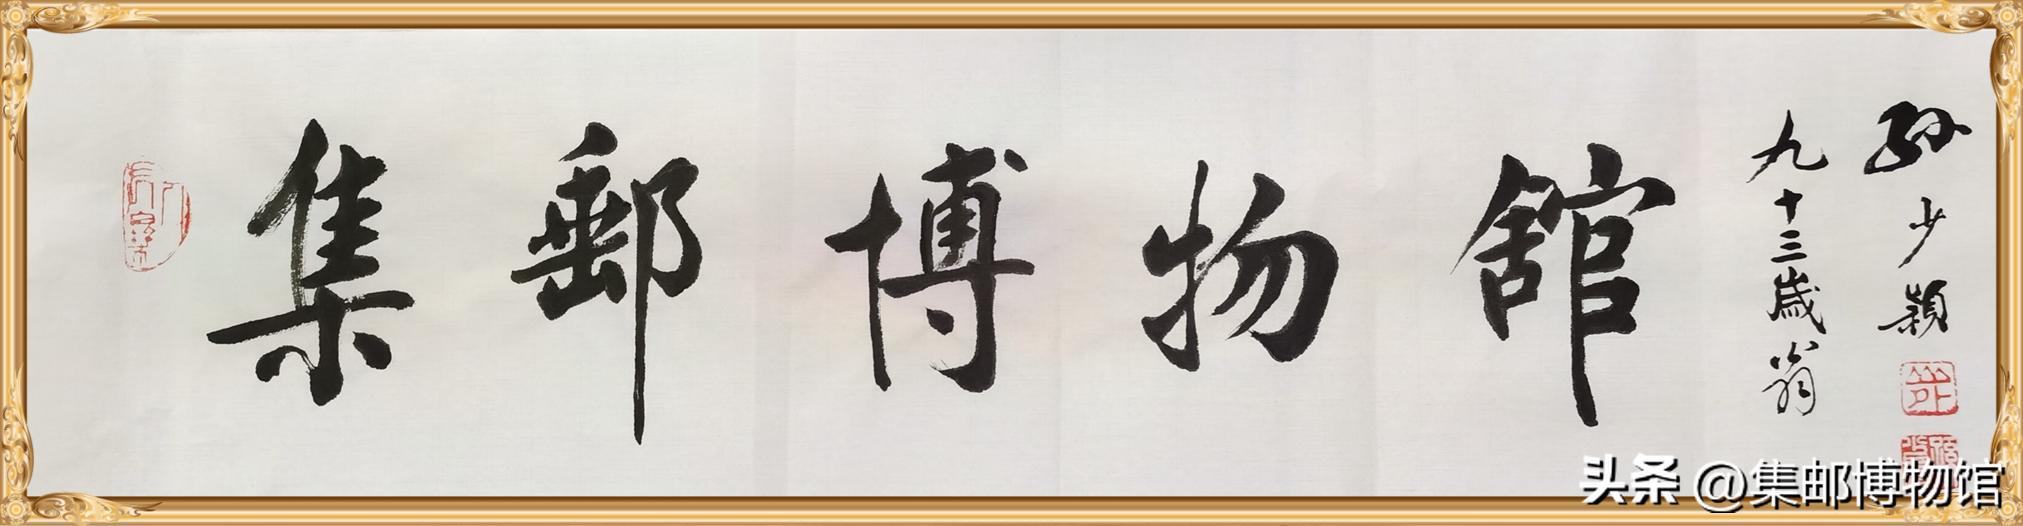 集郵博物館
孙少颖
九十三歲翁
头条 @集邮博物馆